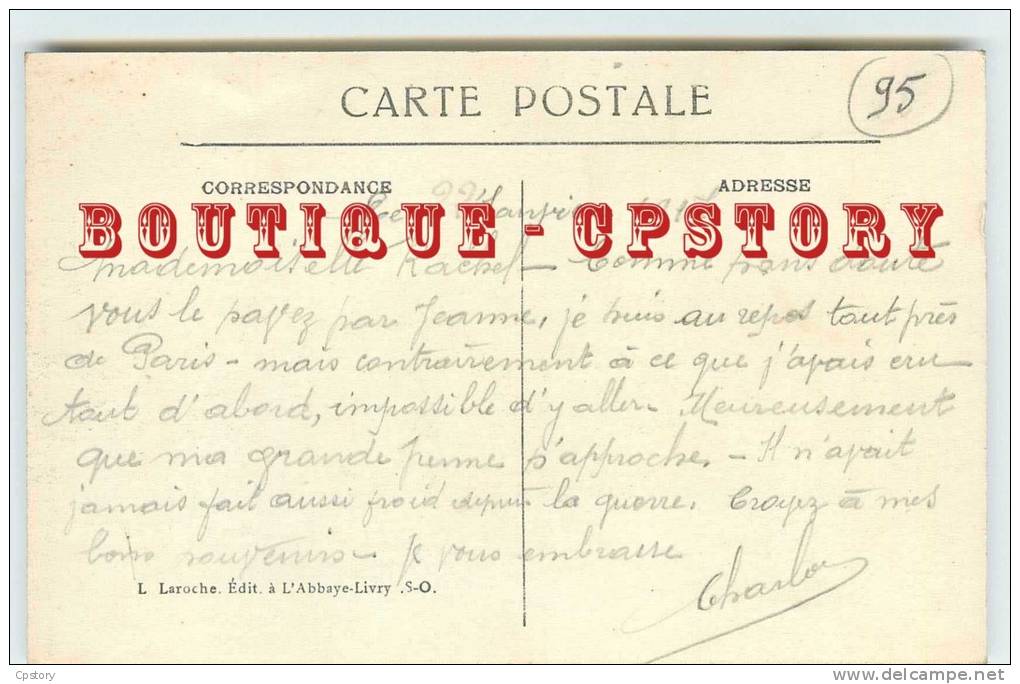 95
CARTE POSTALE
CORRESPONDANCE
ADRESSE
BOUTIQUE - CPSTORY
Mademoiselle Rachel - Comme sans doute
vous le savez par Jeanne, je suis au repos tout près
de Paris - mais contrairement à ce que j'avais cru
tout d'abord, impossible d'y aller. Heureusement
que ma grande perme s'approche. - Il n'avait
jamais fait aussi froid depuis la guerre. Croyez à mes
bons souvenirs. Je vous embrasse
L Laroche. Édit. à L'Abbaye-Livry .S-O.
Cpstory
www.delcampe.net